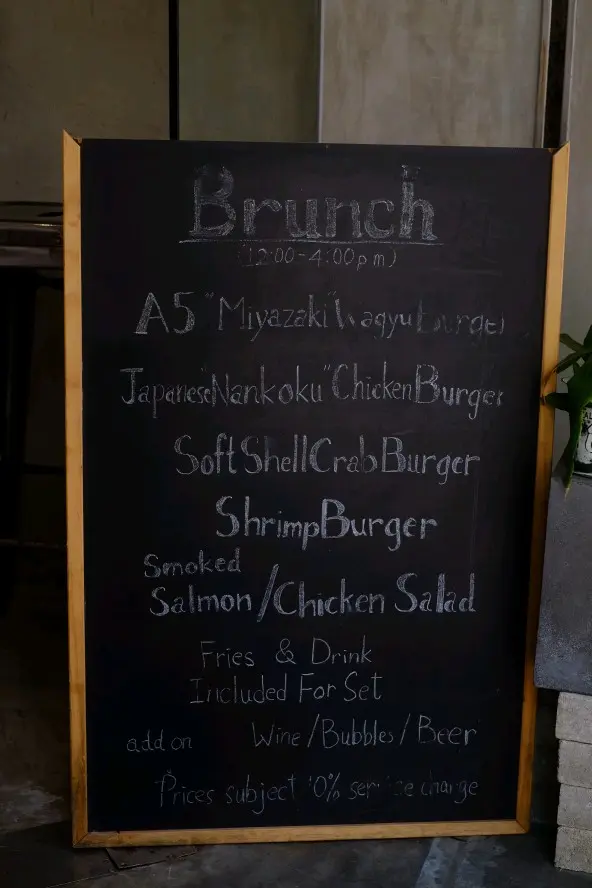 Brunch
(12:00-4:00pm)
A5 "Miyazaki" Wagyu Burger
Japanese "Nankoku" Chicken Burger
Soft Shell Crab Burger
Shrimp Burger
Smoked
Salmon / Chicken Salad
Fries & Drink
Included For Set
add on Wine / Bubbles / Beer
Prices subject service charge